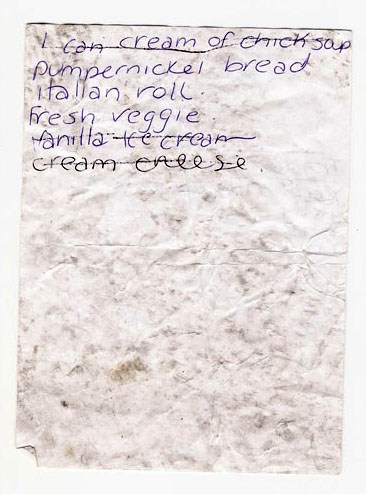 1 can cream of chick soup
pumpernickel bread
italian roll.
fresh veggie.
vanilla Ice cream
cream cheese.